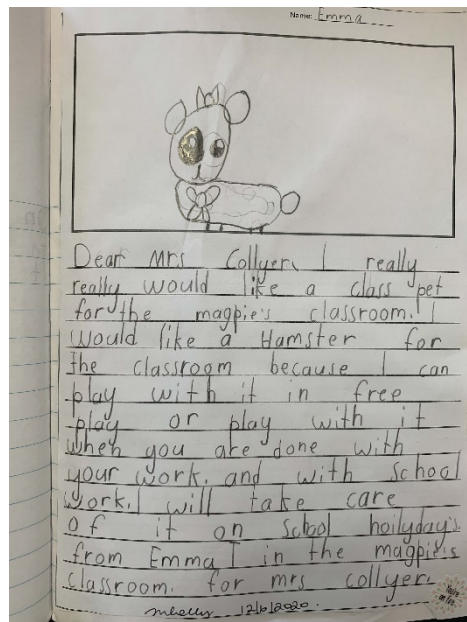 Name: Emma
Dear Mrs Collyer, I really
really would like a class pet
for the magpie's classroom. I
would like a Hamster for
the classroom because I can
play with it in free
play or play with it
when you are done with
your work. and with school
work. I will take care
of it on school hoilyday's
from Emma T in the magpie's
classroom. for mrs collyer.
12/6/2020.
You're
on fire